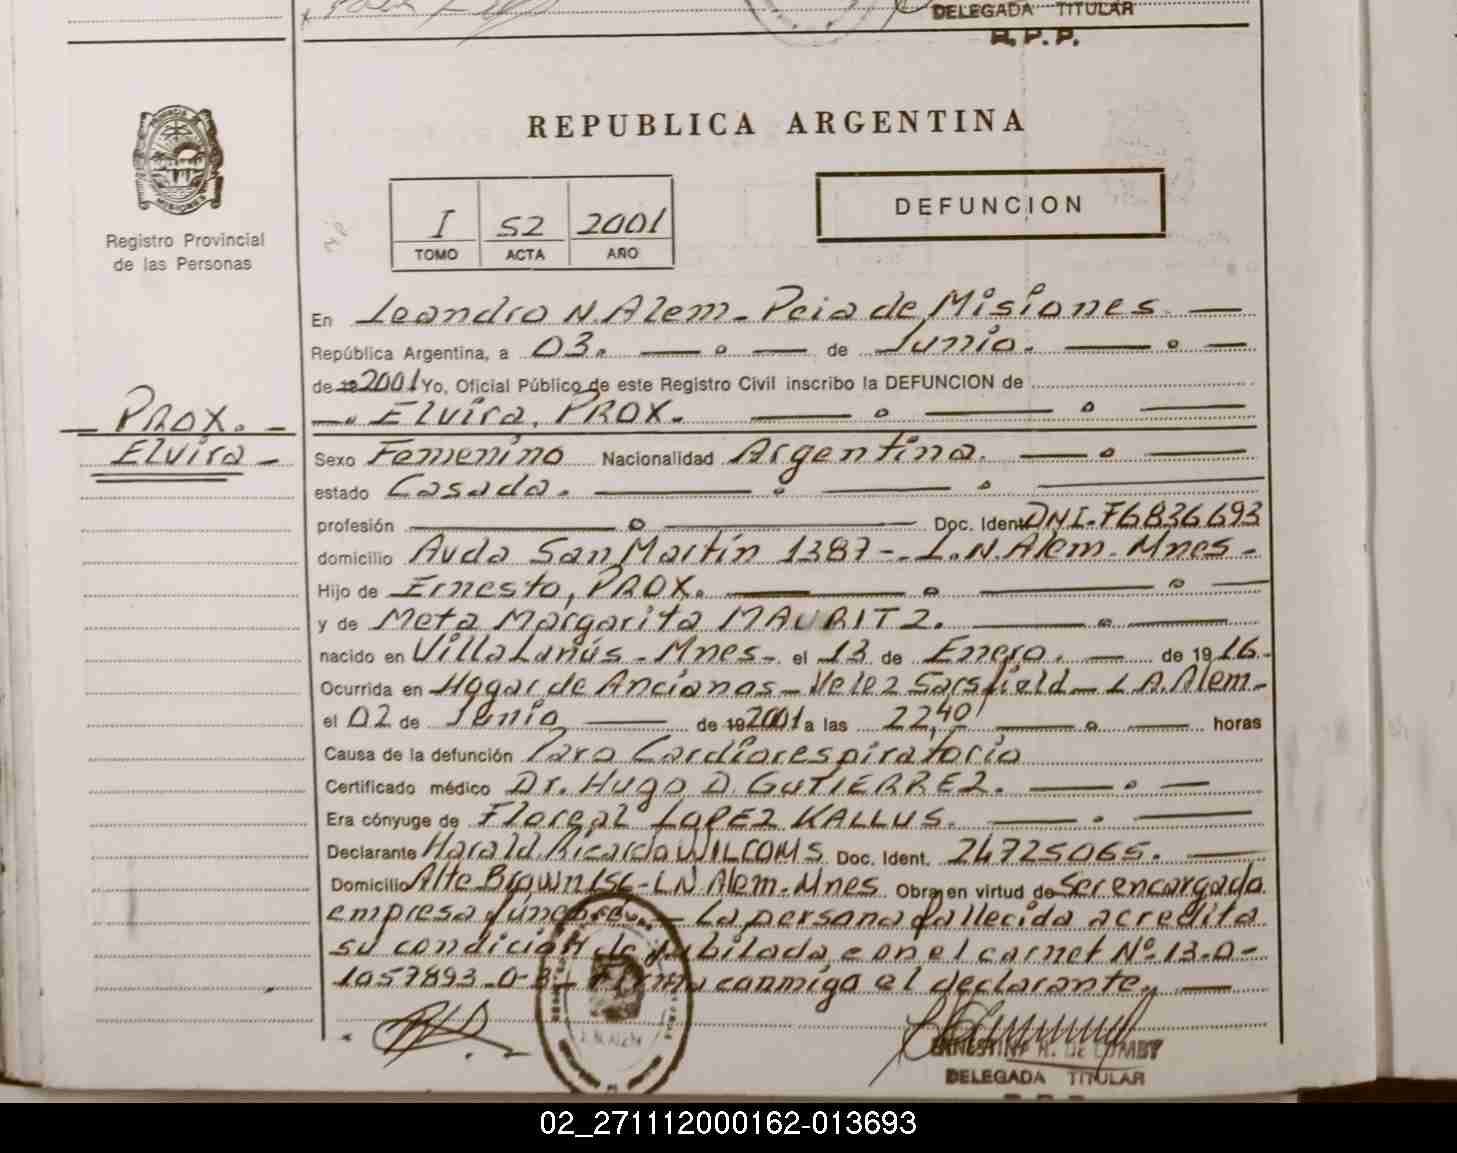 DELEGADA TITULAR
R. P. P.
REPUBLICA ARGENTINA
PROVINCIA DE
MISIONES
Registro Provincial
de las Personas
I 52 2001
TOMO ACTA AÑO
DEFUNCION
En Leandro N. Alem - Pcia de Misiones.
República Argentina, a 03. de Junio.
de 19 2001 Yo, Oficial Público de este Registro Civil inscribo la DEFUNCION de
Elvira, PROX.
PROX. -
Elvira -
Sexo Femenino Nacionalidad Argentina.
estado Casada.
profesión Doc. Ident. DNI-F6836693
domicilio Avda San Martín 1387 - L.N. Alem. Mnes -
Hijo de Ernesto, PROX.
y de Meta Margarita MAURITZ.
nacido en Villa Lanús - Mnes -. el 13 de Enero. de 19 16.-
Ocurrida en Hogar de Ancianos - Velez Sarsfield - L.A. Alem -
el 02 de Junio de 19 2001 a las 22,40 horas
Causa de la defunción Paro Cardiorespiratorio
Certificado médico Dr. Hugo D. GUTIERREZ.
Era cónyuge de Floreal LOPEZ KALLUS.
Declarante Harald Ricardo WILCOMS Doc. Ident. 24725065.
Domicilio Alte Brown LN Alem. Mnes Obra en virtud de Ser encargado
empresa fúnebre - La persona fallecida acredita
su condición de jubilada con el carnet Nº 13-0-
1057893-0-3 - Firma conmigo el declarante.
L.N. ALEM
DELEGADA TITULAR
02_271112000162-013693